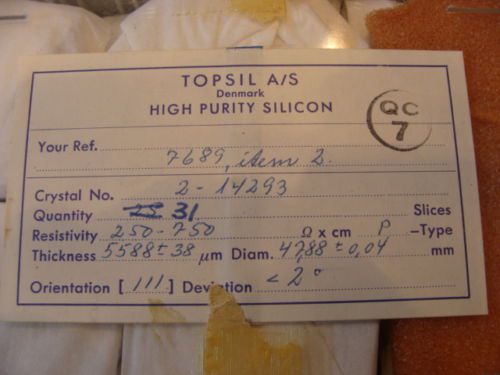 TOPSIL A/S
Denmark
HIGH PURITY SILICON
QC
7
Your Ref. 7689, item 2.
Crystal No. 2-14293
Quantity 31 Slices
Resistivity 250-750 Ω x cm P -Type
Thickness 5588 ± 38 μm Diam. 47,88 ± 0,04 mm
Orientation [111] Deviation < 2°